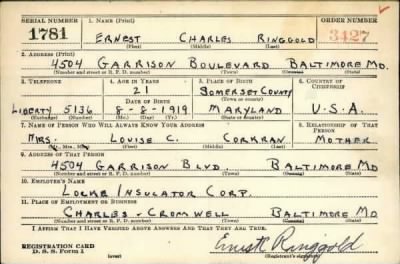 SERIAL NUMBER 1. NAME (Print) ORDER NUMBER
1781 ERNEST CHARLES RINGGOLD 3427
(First) (Middle) (Last)
2. ADDRESS (Print)
4504 GARRISON BOULEVARD BALTIMORE MD.
(Number and street or R. F. D. number) (Town) (County) (State)
3. TELEPHONE 4. AGE IN YEARS 5. PLACE OF BIRTH 6. COUNTRY OF CITIZENSHIP
21 SOMERSET COUNTY
DATE OF BIRTH (Town or county)
LIBERTY 5136 8-8-1919 MARYLAND U.S.A.
(Exchange) (Number) (Mo.) (Day) (Yr.) (State or country)
7. NAME OF PERSON WHO WILL ALWAYS KNOW YOUR ADDRESS 8. RELATIONSHIP OF THAT PERSON
MRS. LOUISE C. CORKRAN MOTHER
(Mr., Mrs., Miss) (First) (Middle) (Last)
9. ADDRESS OF THAT PERSON
4504 GARRISON BLVD. BALTIMORE MD
(Number and street or R. F. D. number) (Town) (County) (State)
10. EMPLOYER'S NAME
LOCKE INSULATOR CORP.
11. PLACE OF EMPLOYMENT OR BUSINESS
CHARLES - CROMWELL BALTIMORE MD
(Number and street or R. F. D. number) (Town) (County) (State)
I AFFIRM THAT I HAVE VERIFIED ABOVE ANSWERS AND THAT THEY ARE TRUE.
REGISTRATION CARD
D. S. S. Form 1 (over) (Registrant's signature)
Ringgold